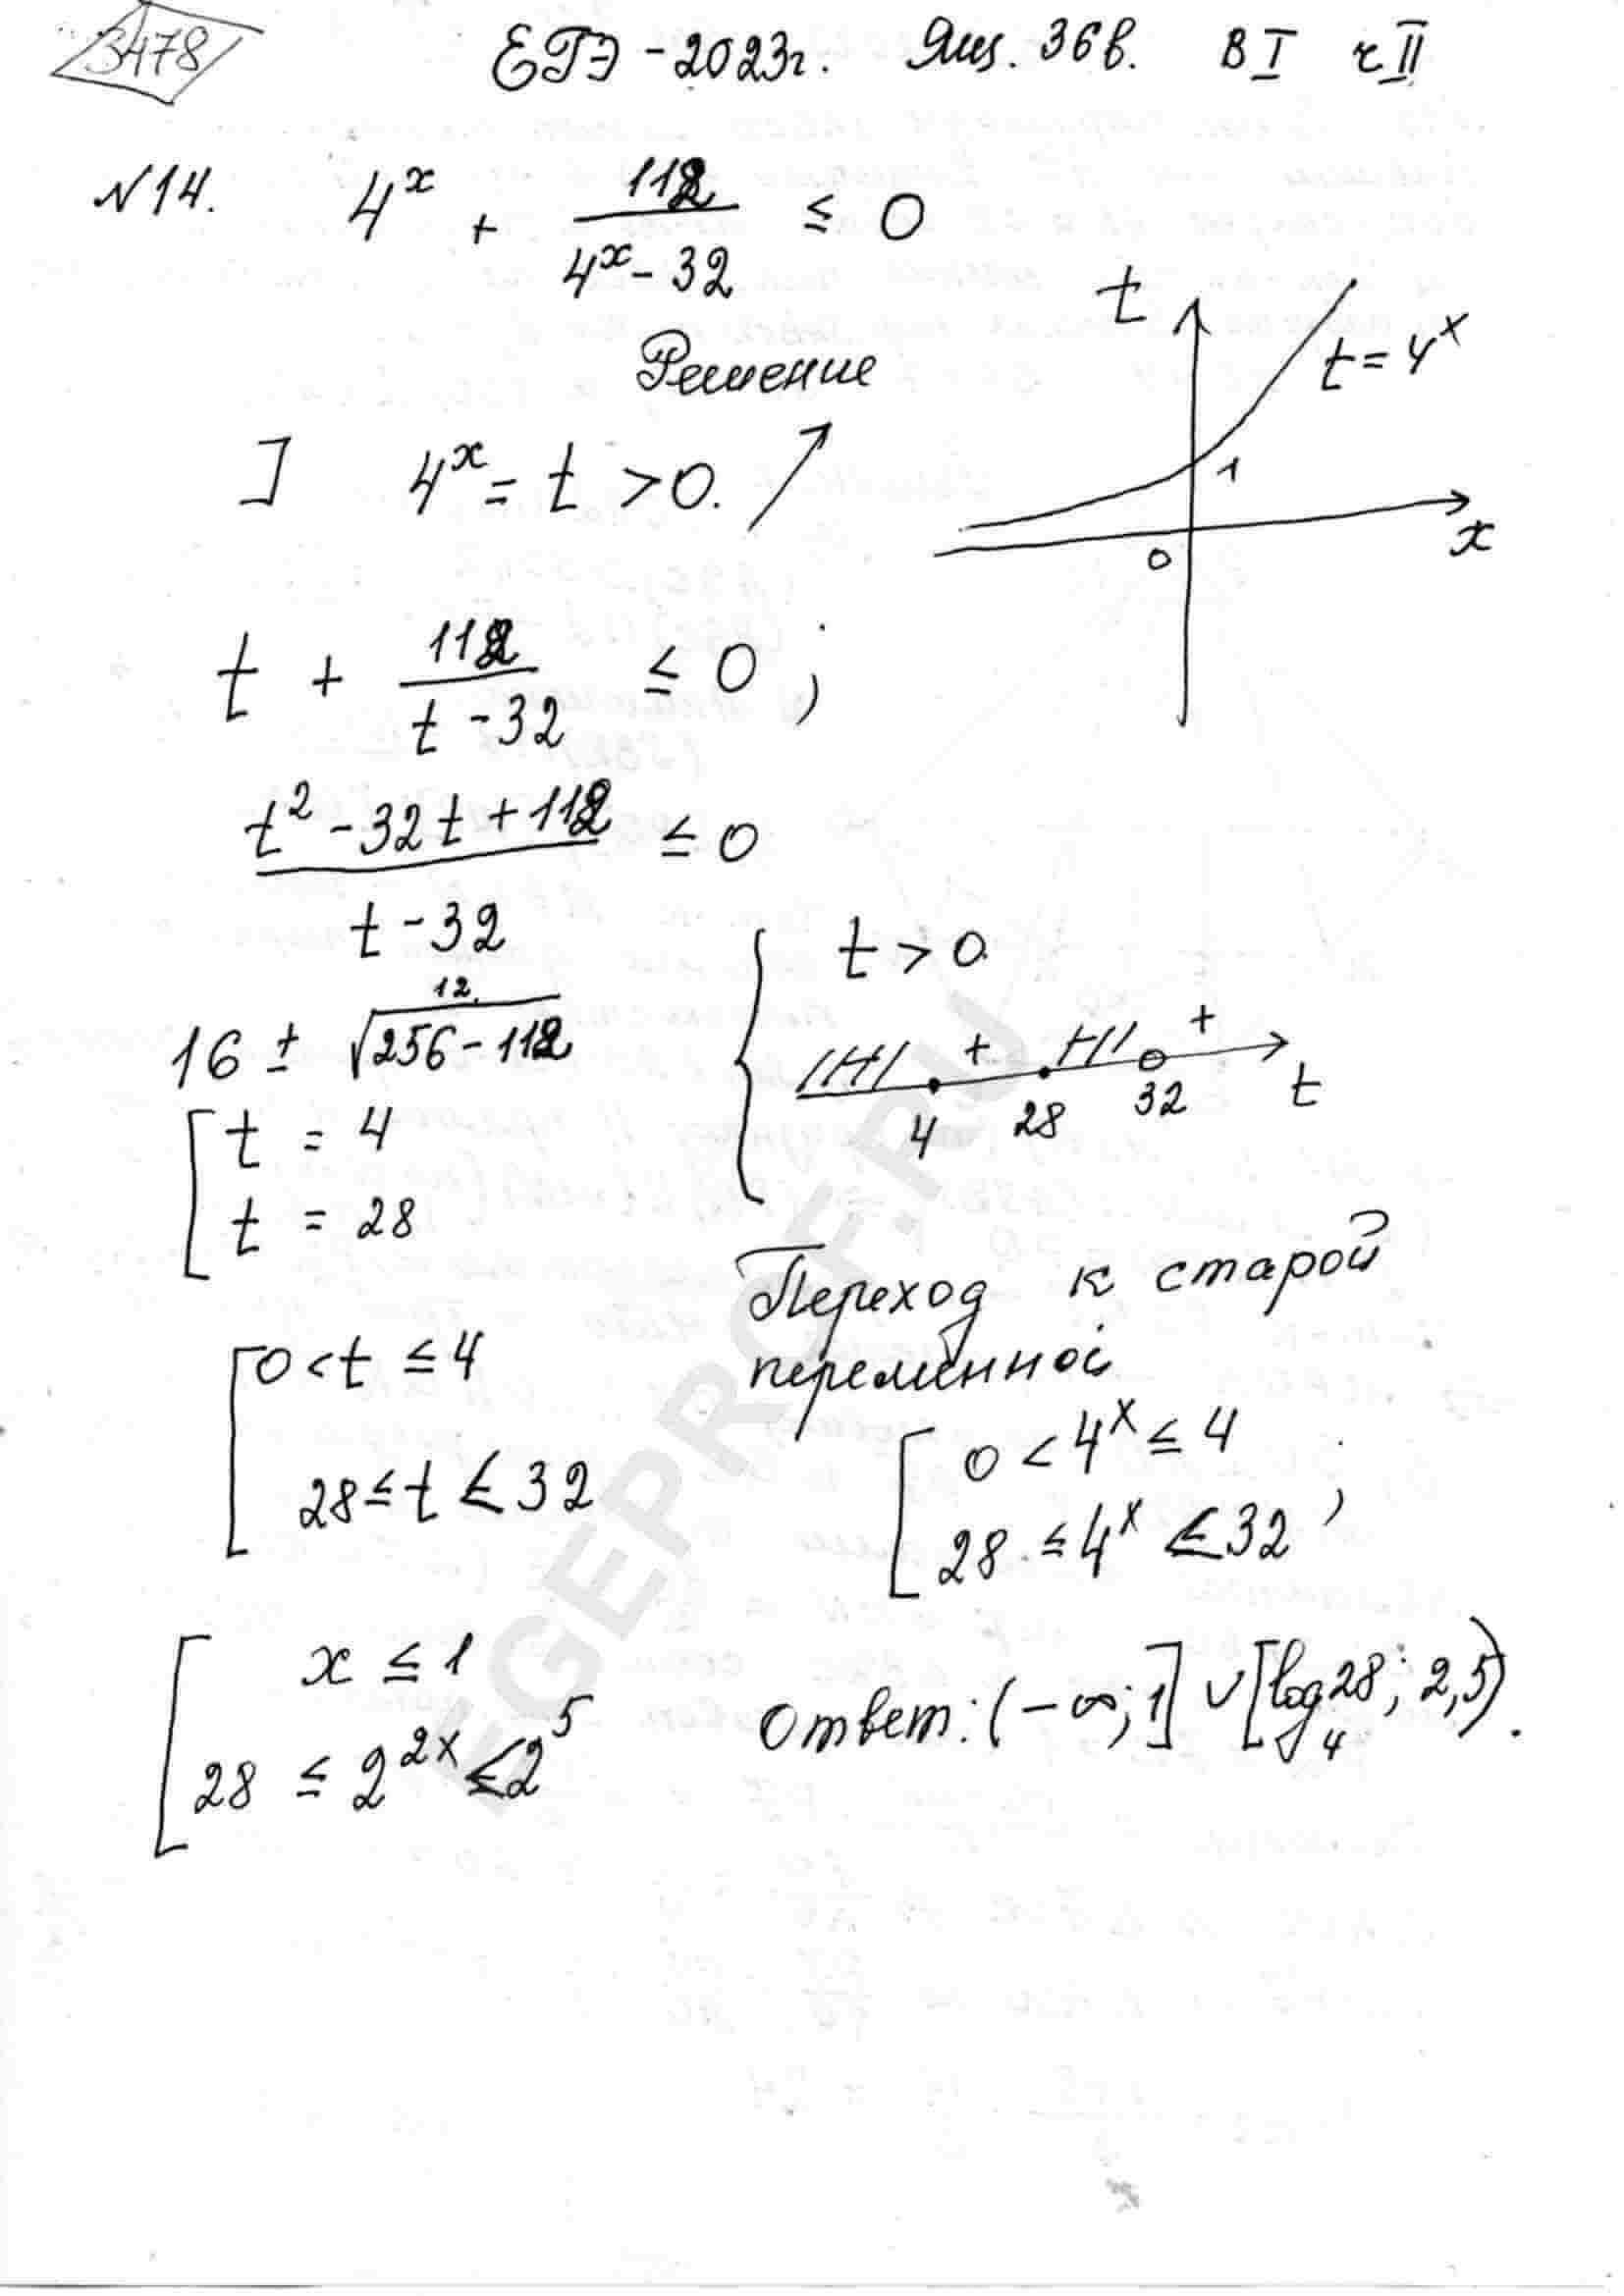 3478
ЕГЭ - 2023г. Ящ. 36в. В I ч II
№14. 4^x + 112/(4^x - 32) ≤ 0
Решение
] 4^x = t > 0. ↗
t
t = 4^x
1
0
x
t + 112/(t - 32) ≤ 0 ;
(t^2 - 32t + 112)/(t - 32) ≤ 0
12
16 ± √(256 - 112)
[ t = 4
t = 28
{ t > 0
+ +
4 28 32 t
[ 0 < t ≤ 4
28 ≤ t < 32
Переход к старой
переменной
[ 0 < 4^x ≤ 4
28 ≤ 4^x < 32 ;
[ x ≤ 1
28 ≤ 2^{2x} < 2^5
Ответ: (-∞; 1] ∪ [log_4 28; 2,5).
EGEPROF.RU